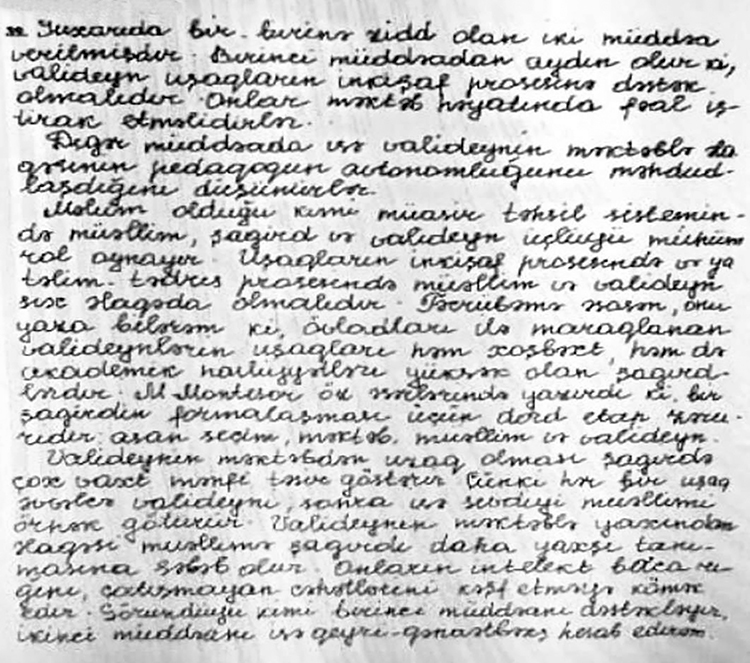 Yuxarıda bir-birinə zidd olan iki müddəa
verilmişdir. Birinci müddəadan aydın olur ki,
valideyn uşaqların inkişaf prosesinə dəstək
olmalıdır. Onlar məktəb həyatında fəal iş-
tirak etməlidirlər.
Digər müddəada isə valideynin məktəblə əla
qəsinin pedaqoqun avtonomluğunu məhdud-
laşdığını düşünürlər.
Məlum olduğu kimi müasir təhsil sistemin-
də müəllim, şagird və valideyn üçlüyü mühüm
rol oynayır. Uşaqların inkişaf prosesində və ya
təlim-tədris prosesində müəllim və valideyn
sıx əlaqədə olmalıdır. Təcrübəmə əsasən, onu
yaza bilərəm ki, övladları ilə maraqlanan
valideynlərin uşaqları həm xoşbəxt, həm də
akademik nailiyyətləri yüksək olan şagird-
lərdir. M.Montesor öz əsərlərində yazırdı ki, bir
şagirdin formalaşması üçün dörd etap zəru-
ridir: asan seçim, məktəb, müəllim və valideyn.
Valideynin məktəbdən uzaq olması şagirdə
çox vaxt mənfi təsir göstərir. Çünki hər bir uşaq
əvvəlcə valideyni, sonra isə sevdiyi müəllimi
örnək götürür. Valideynin məktəblə yaxından
əlaqəsi müəllimə şagirdi daha yaxşı tanı-
masına səbəb olur. Onların intelekt bacarı-
ğını, çatışmayan cəhətlərini kəşf etməyə kömək
edir. Göründüyü kimi birinci müddəanı dəstəkləyir,
ikinci müddəanı isə qeyri-qənaətbəxş hesab edirəm.